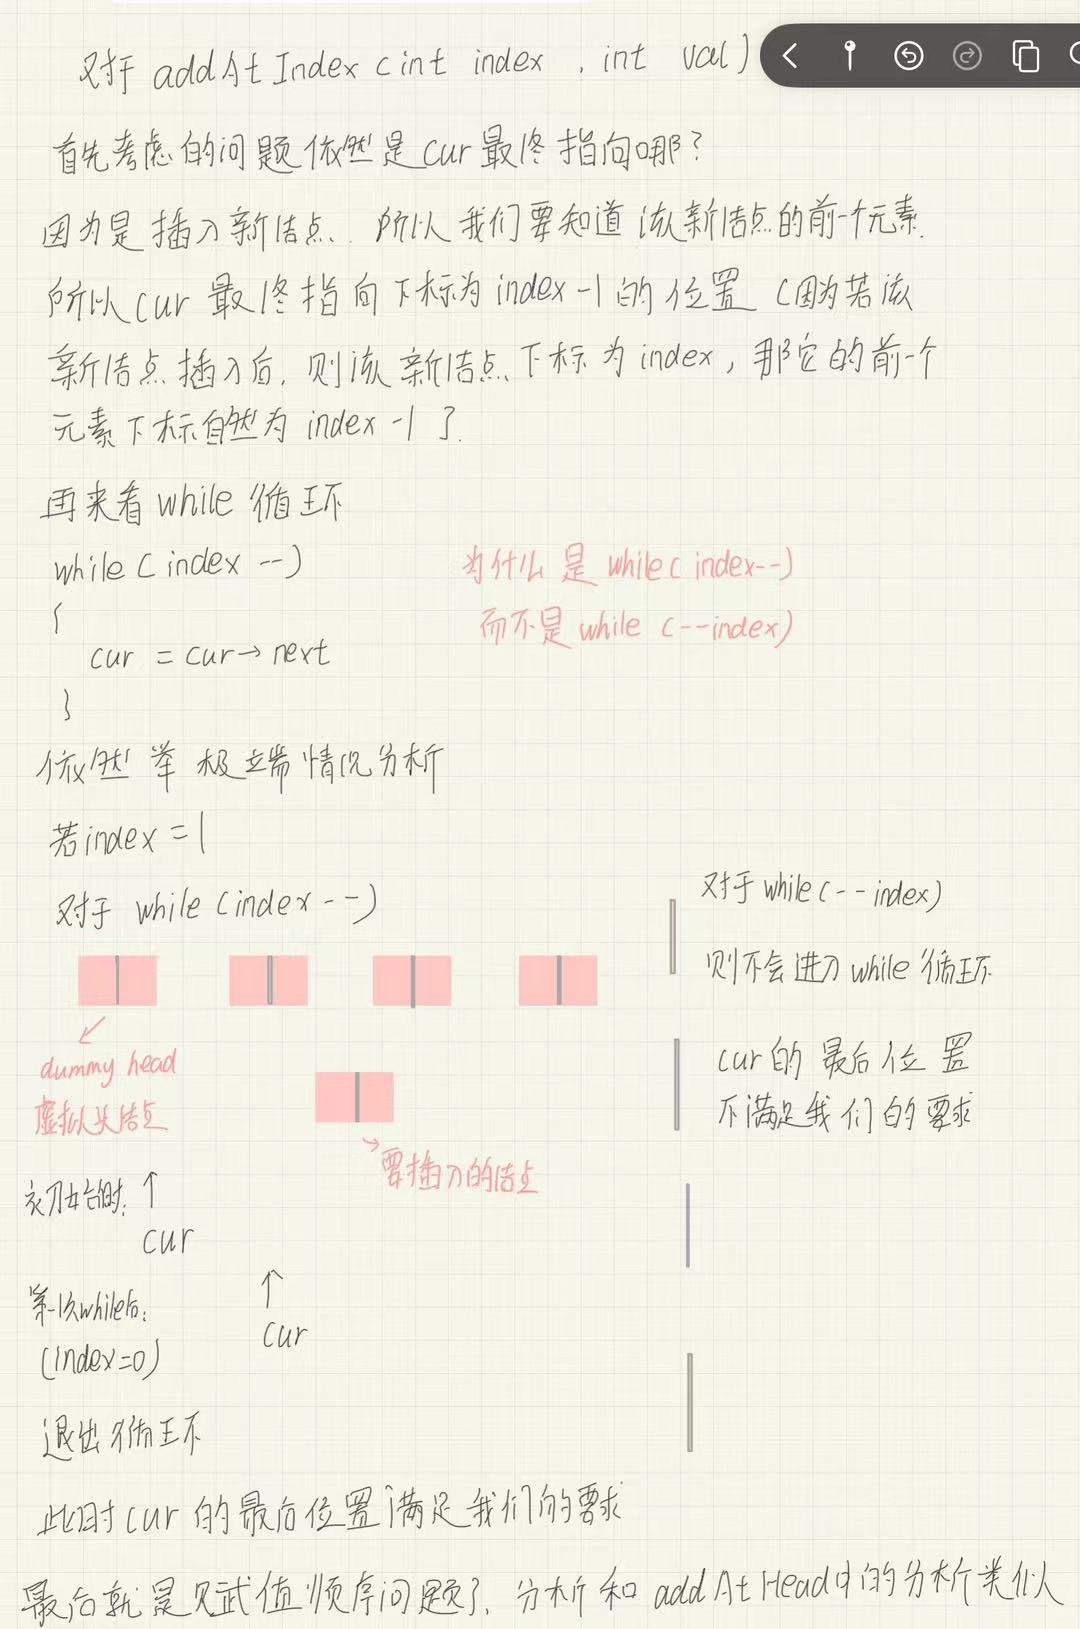 对于 addAtIndex (int index , int val)
首先考虑的问题依然是cur最终指向哪?
因为是插入新结点. 所以我们要知道该新结点的前一个元素.
所以cur最终指向下标为index-1的位置 (因为若该
新结点插入后, 则该新结点下标为index, 那它的前一个
元素下标自然为index-1).
再来看while循环
while ( index --)
{
cur = cur→next
}
为什么是while( index--)
而不是while (--index)
依然举极端情况分析
若index = 1
对于 while (index--)
dummy head
虚拟头结点
要插入的结点
初始时:
cur
第一次while后:
(index=0)
cur
退出循环
此时cur的最后位置满足我们的要求
对于while(--index)
则不会进入while循环
cur的最后位置
不满足我们的要求
最后就是赋值顺序问题了, 分析和addAtHead中的分析类似